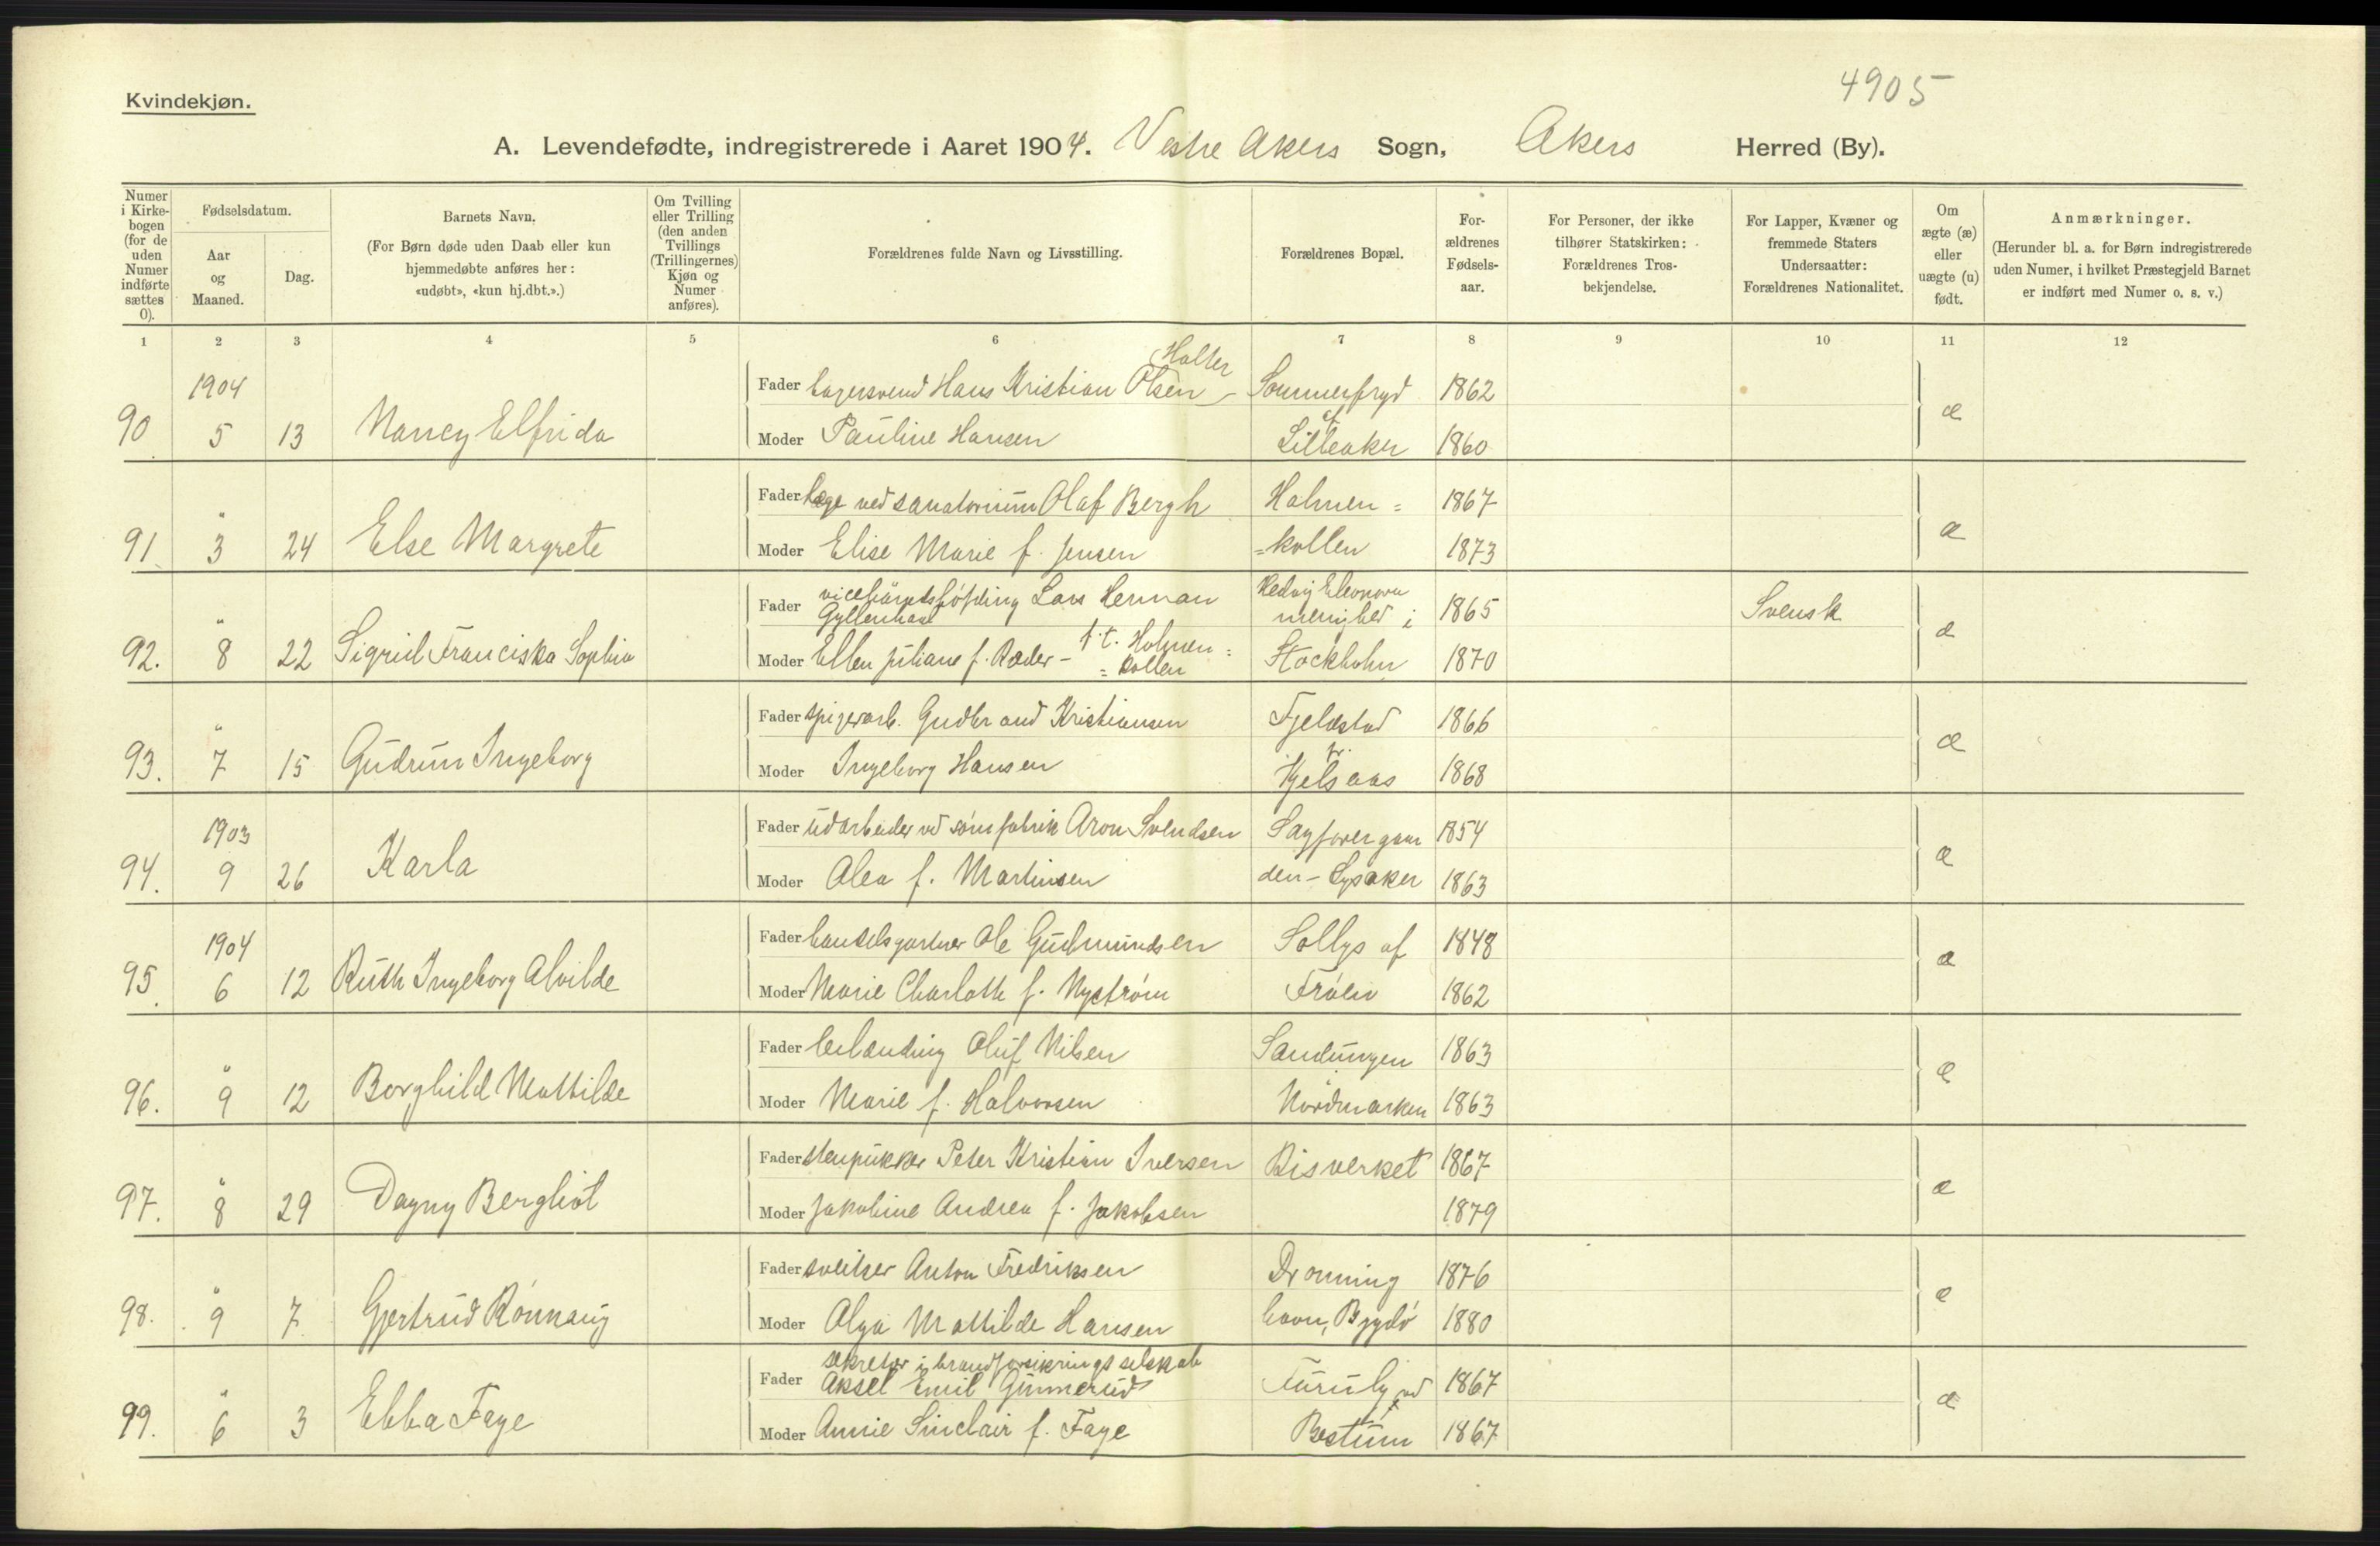 4905
Kvindekjøn.
A. Levendefødte, indregistrerede i Aaret 1904. Vestre Akers Sogn, Akers Herred (By).
Numer i Kirke-bogen (for de uden Numer indførte sættes 0).
Fødselsdatum.
Aar og Maaned.
Dag.
Barnets Navn.
(For Børn døde uden Daab eller kun hjemmedøbte anføres her: «udøbt», «kun hj.dbt.».)
Om Tvilling eller Trilling (den anden Tvillings (Trillingernes) Kjøn og Numer anføres).
Forældrenes fulde Navn og Livsstilling.
Forældrenes Bopæl.
For-ældrenes Fødsels-aar.
For Personer, der ikke tilhører Statskirken: Forældrenes Tros-bekjendelse.
For Lapper, Kvæner og fremmede Staters Undersaatter: Forældrenes Nationalitet.
Om ægte (æ) eller uægte (u) født.
Anmærkninger.
(Herunder bl. a. for Børn indregistrerede uden Numer, i hvilket Præstegjeld Barnet er indført med Numer o. s. v.)
1 2 3 4 5 6 7 8 9 10 11 12
Halter
1904 Fader lagersvend Hans Kristian Olsen - Sommerfryd 1862
90 5 13 Nancy Elfrida Moder Pauline Hansen af Lilleaker 1860 æ
Fader læge ved sanatorium Olaf Bergh Holmen = 1867
91 " 3 24 Else Margrete Moder Elise Marie f. Jensen =kollen 1873 æ
Fader vicehäradshöfding Lars Herman Gyllenhaal Hedvig Eleonora menighed i 1865 Svensk
92. " 8 22 Sigrid Franciska Sophia Moder Ellen Juliane f. Ræder - t.t. Holmen = = kollen Stockholm 1870 æ
Fader spigerarb. Gudbrand Kristiansen Fjeldstad 1866
93. " 7 15 Gudrun Ingeborg Moder Ingeborg Hansen pr. Kjelsaas 1868 æ
1903 Fader udarbeider ved sömfabrik Aron Svendsen Sagforergaar 1854
94. 9 26 Karla Moder Alea f. Martinsen den - Lysaker 1863 æ
1904 Fader handelsgartner Ole Gudmundsen Sollys af 1848
95. 6 12 Ruth Ingeborg Alvilde Moder Marie Charlotte f. Nyström Fröen 1862 æ
Fader leilænding Oluf Nilsen Sandungen 1863
96. " 9 12 Borghild Mathilde Moder Marie f. Halvorsen Nordmarken 1863 æ
Fader stenpukker Peter Kristian Iversen Risverket 1867
97. " 8 29 Dagny Bergliot Moder Jakobine Andrea f. Jakobsen 1879 æ
Fader sveitser Anton Fredriksen Dronning 1876
98. " 9 7 Gjertrud Rönnaug Moder Olga Mathilde Hansen havn, Bygdö 1880 æ
Fader sekretær i brandforsikringsselskab Aksel Emil Gunnerud Furuly ved 1867
99. " 6 3 Ebba Faye Moder Annie Sinclair f. Faye Bestum 1867 æ